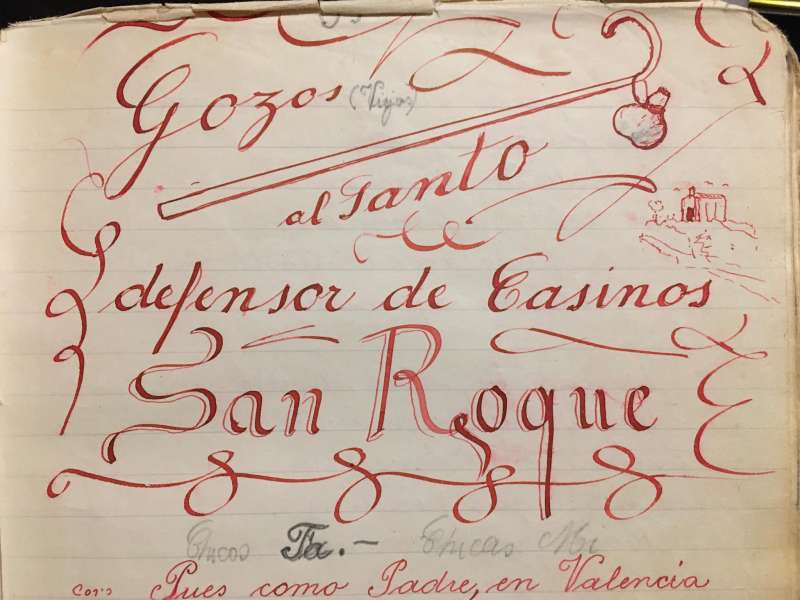 Gozos (Viejos)
al Santo
defensor de Casinos
San Roque
Chicos Fa.- Chicas Mi
Coro Pues como Padre, en Valencia